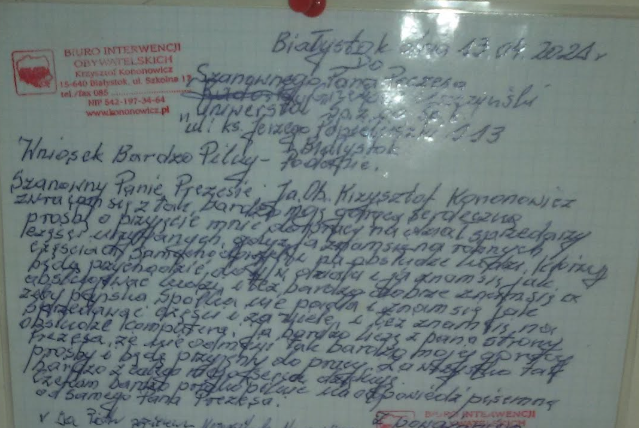 BIURO INTERWENCJI
OBYWATELSKICH
Krzysztof Kononowicz
15-640 Białystok, ul. Szkolna 17
tel./fax 085
NIP 542-197-34-64
www.kononowicz.pl
Białystok dnia 13.04.2021 r
Do
Szanownego Pana Prezesa
ul. ks. Jerzego Popiełuszki 113
Białystok
Wniosek Bardzo Pilny - Podanie.
Szanowny Panie Prezesie. Ja, Ob. Krzysztof Kononowicz
zwracam się z tak bardzo moją gorącą serdeczną
prośbą o przyjęcie mnie do pracy na dział sprzedarzy
części używanych, gdyż ja znam się na różnych
częściach samochodowych i na obsłudze ludzi, którzy
będą przychodzić, do działu i ja znam się jak
obsługiwać ludzi i też bardzo dobrze znam się
żeby pańska spółka nie padła i znam się jak
sprzedawać części i za wiele, i też znam się na
obsłudze komputera. Ja bardzo liczę z pana strony
Prezesa, że nie odmówi tak bardzo mojej gorącej
prośby i będę przyjęty do pracy. Za wszystko tak
bardzo z całego mego serca dziękuję.
Czekam bardzo pilnie na odpowiedź pisemną
od Samego Pana Prezesa.
BIURO INTERWENCJI